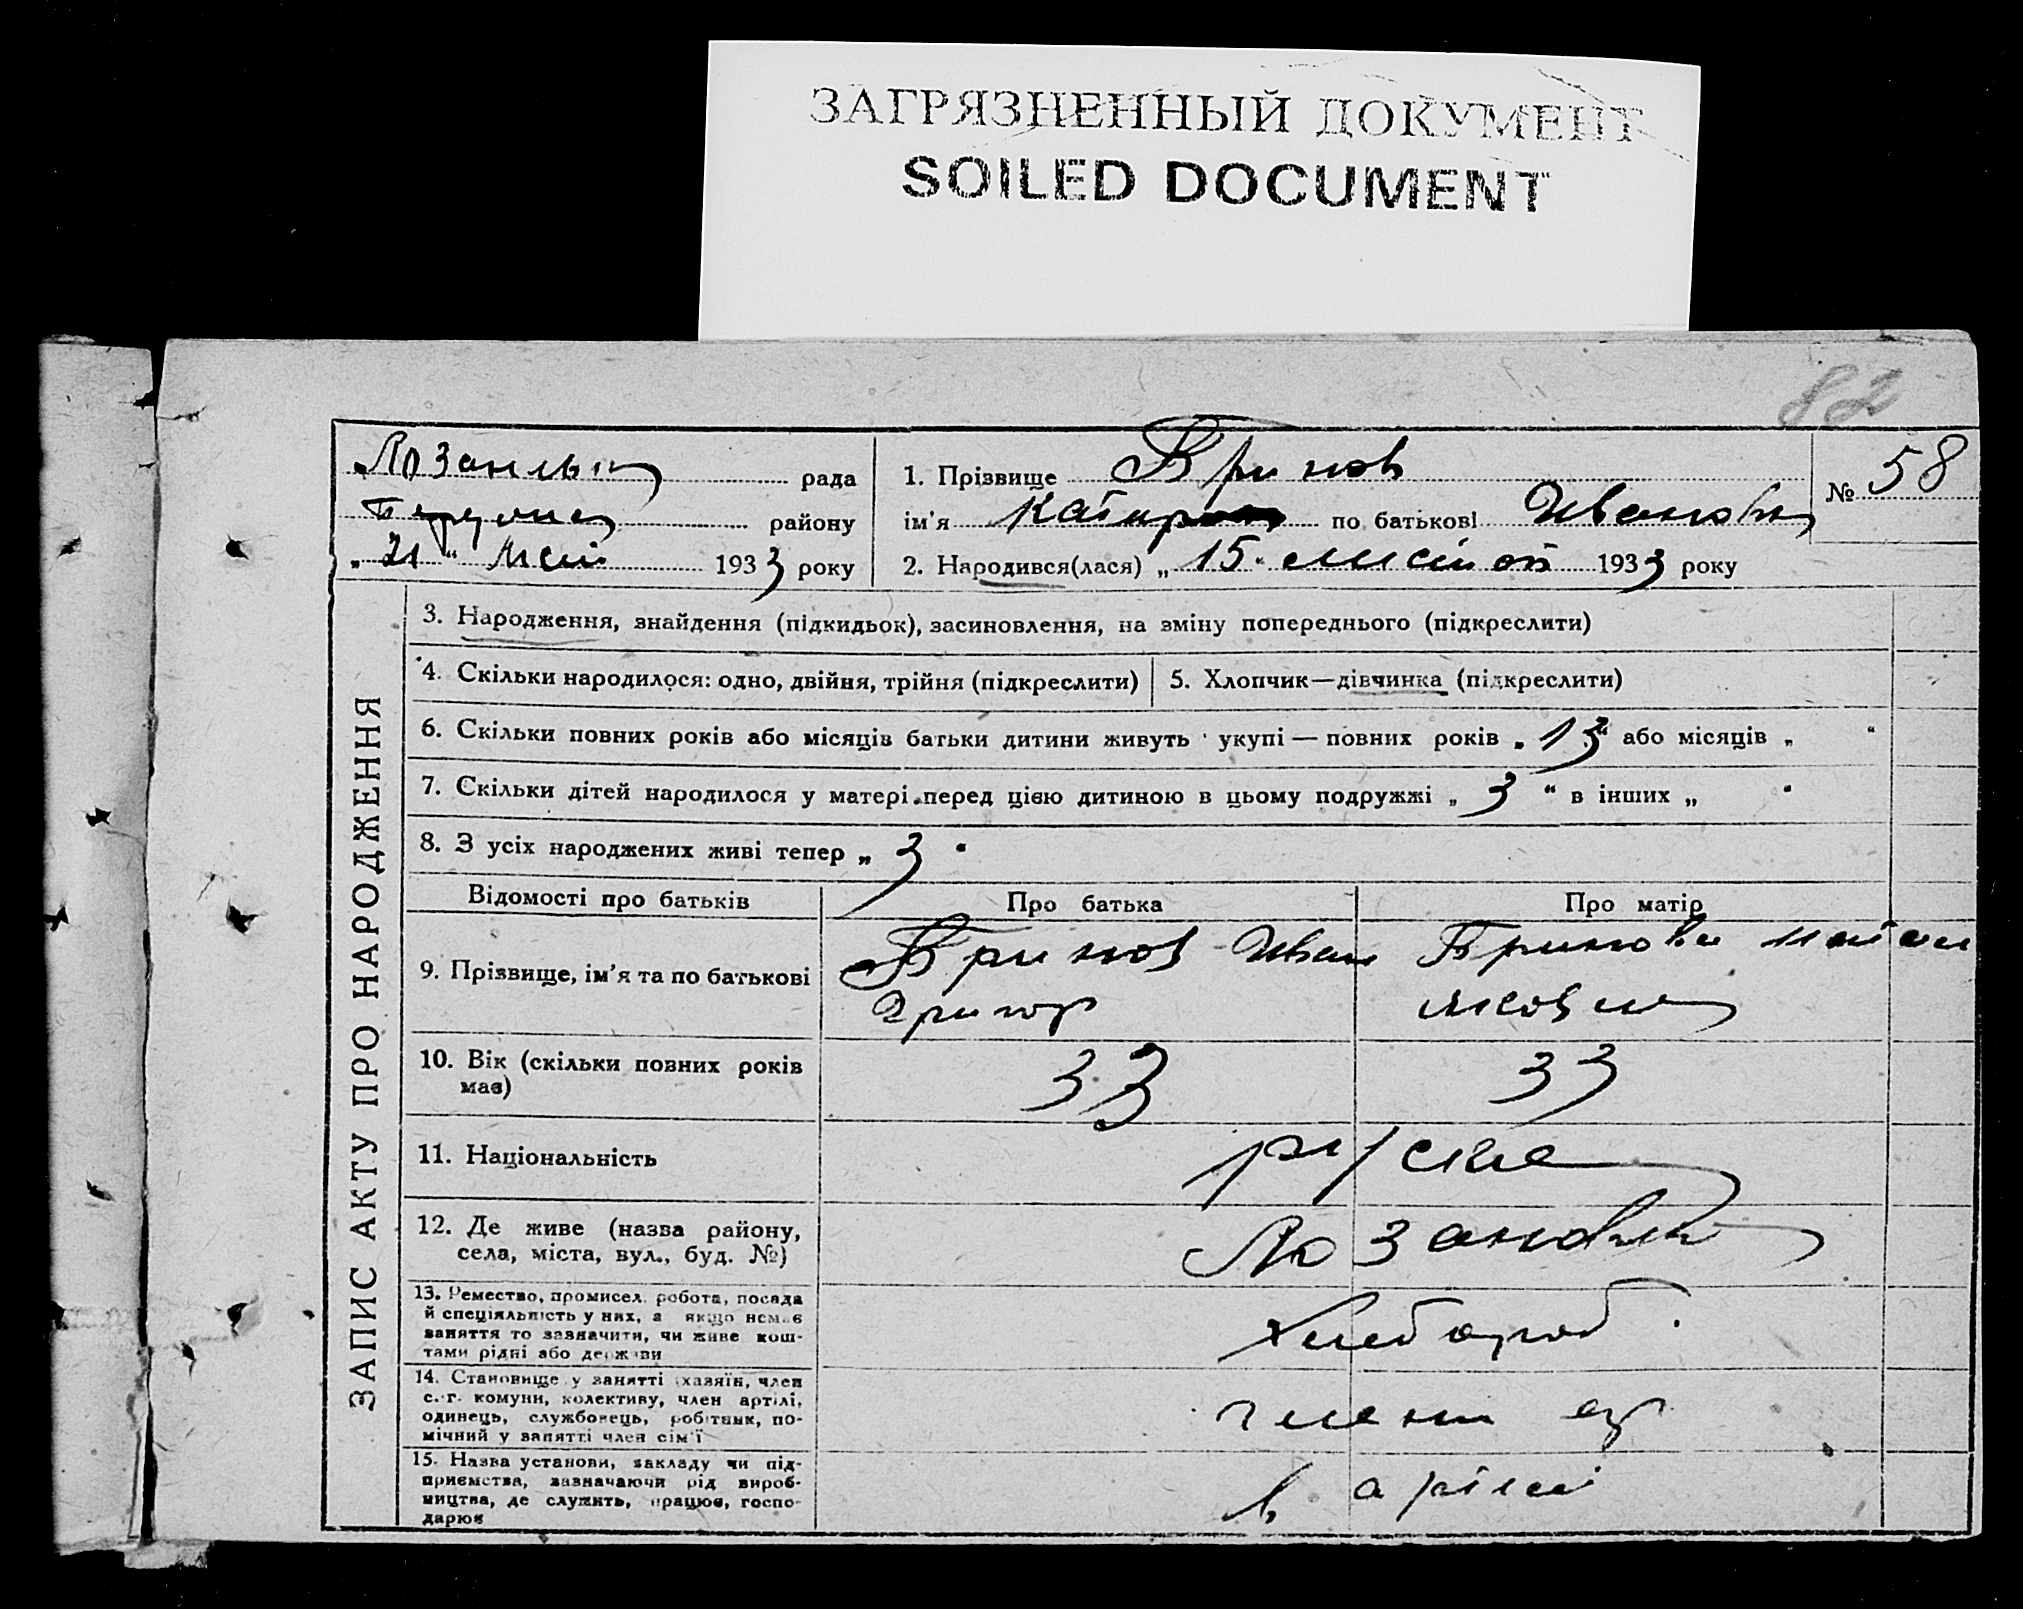 ЗАГРЯЗНЕННЫЙ ДОКУМЕНТ
SOILED DOCUMENT
82
рада
району
"21" 1933 року
1. Прізвище Бринов
ім'я по батькові Ивановн
2. Народився(лася) „15" 1933 року
№ 58
ЗАПИС АКТУ ПРО НАРОДЖЕННЯ
3. Народження, знайдення (підкидьок), засиновлення, на зміну попереднього (підкреслити)
4. Скільки народилося: одно, двійня, трійня (підкреслити)
5. Хлопчик—дівчинка (підкреслити)
6. Скільки повних років або місяців батьки дитини живуть укупі — повних років „13" або місяців „ "
7. Скільки дітей народилося у матері перед цією дитиною в цьому подружжі „3" в інших „ "
8. З усіх народжених живі тепер „3"
Відомості про батьків
Про батька
Про матір
9. Прізвище, ім'я та по батькові
Бринов Иван
Григор
Бринова
Яковле
10. Вік (скільки повних років
має)
33
33
11. Національність
руске
12. Де живе (назва району,
села, міста, вул., буд. №)
Лозановк
13. Ремество, промисел, робота, посада
й спеціяльність у них, а якщо немає
заняття то зазначити, чи живе кош-
тами рідні або держави
хлебороб
14. Становище у занятті (хазяїн, член
с.-г. комуни, колективу, член артілі,
одинець, службовець, робітник, по-
мічний у занятті член сім'ї
члени ар
15. Назва установи, закладу чи під-
приємства, зазначаючи рід вироб-
ництва, де служить, працює, госпо-
дарює
в артели